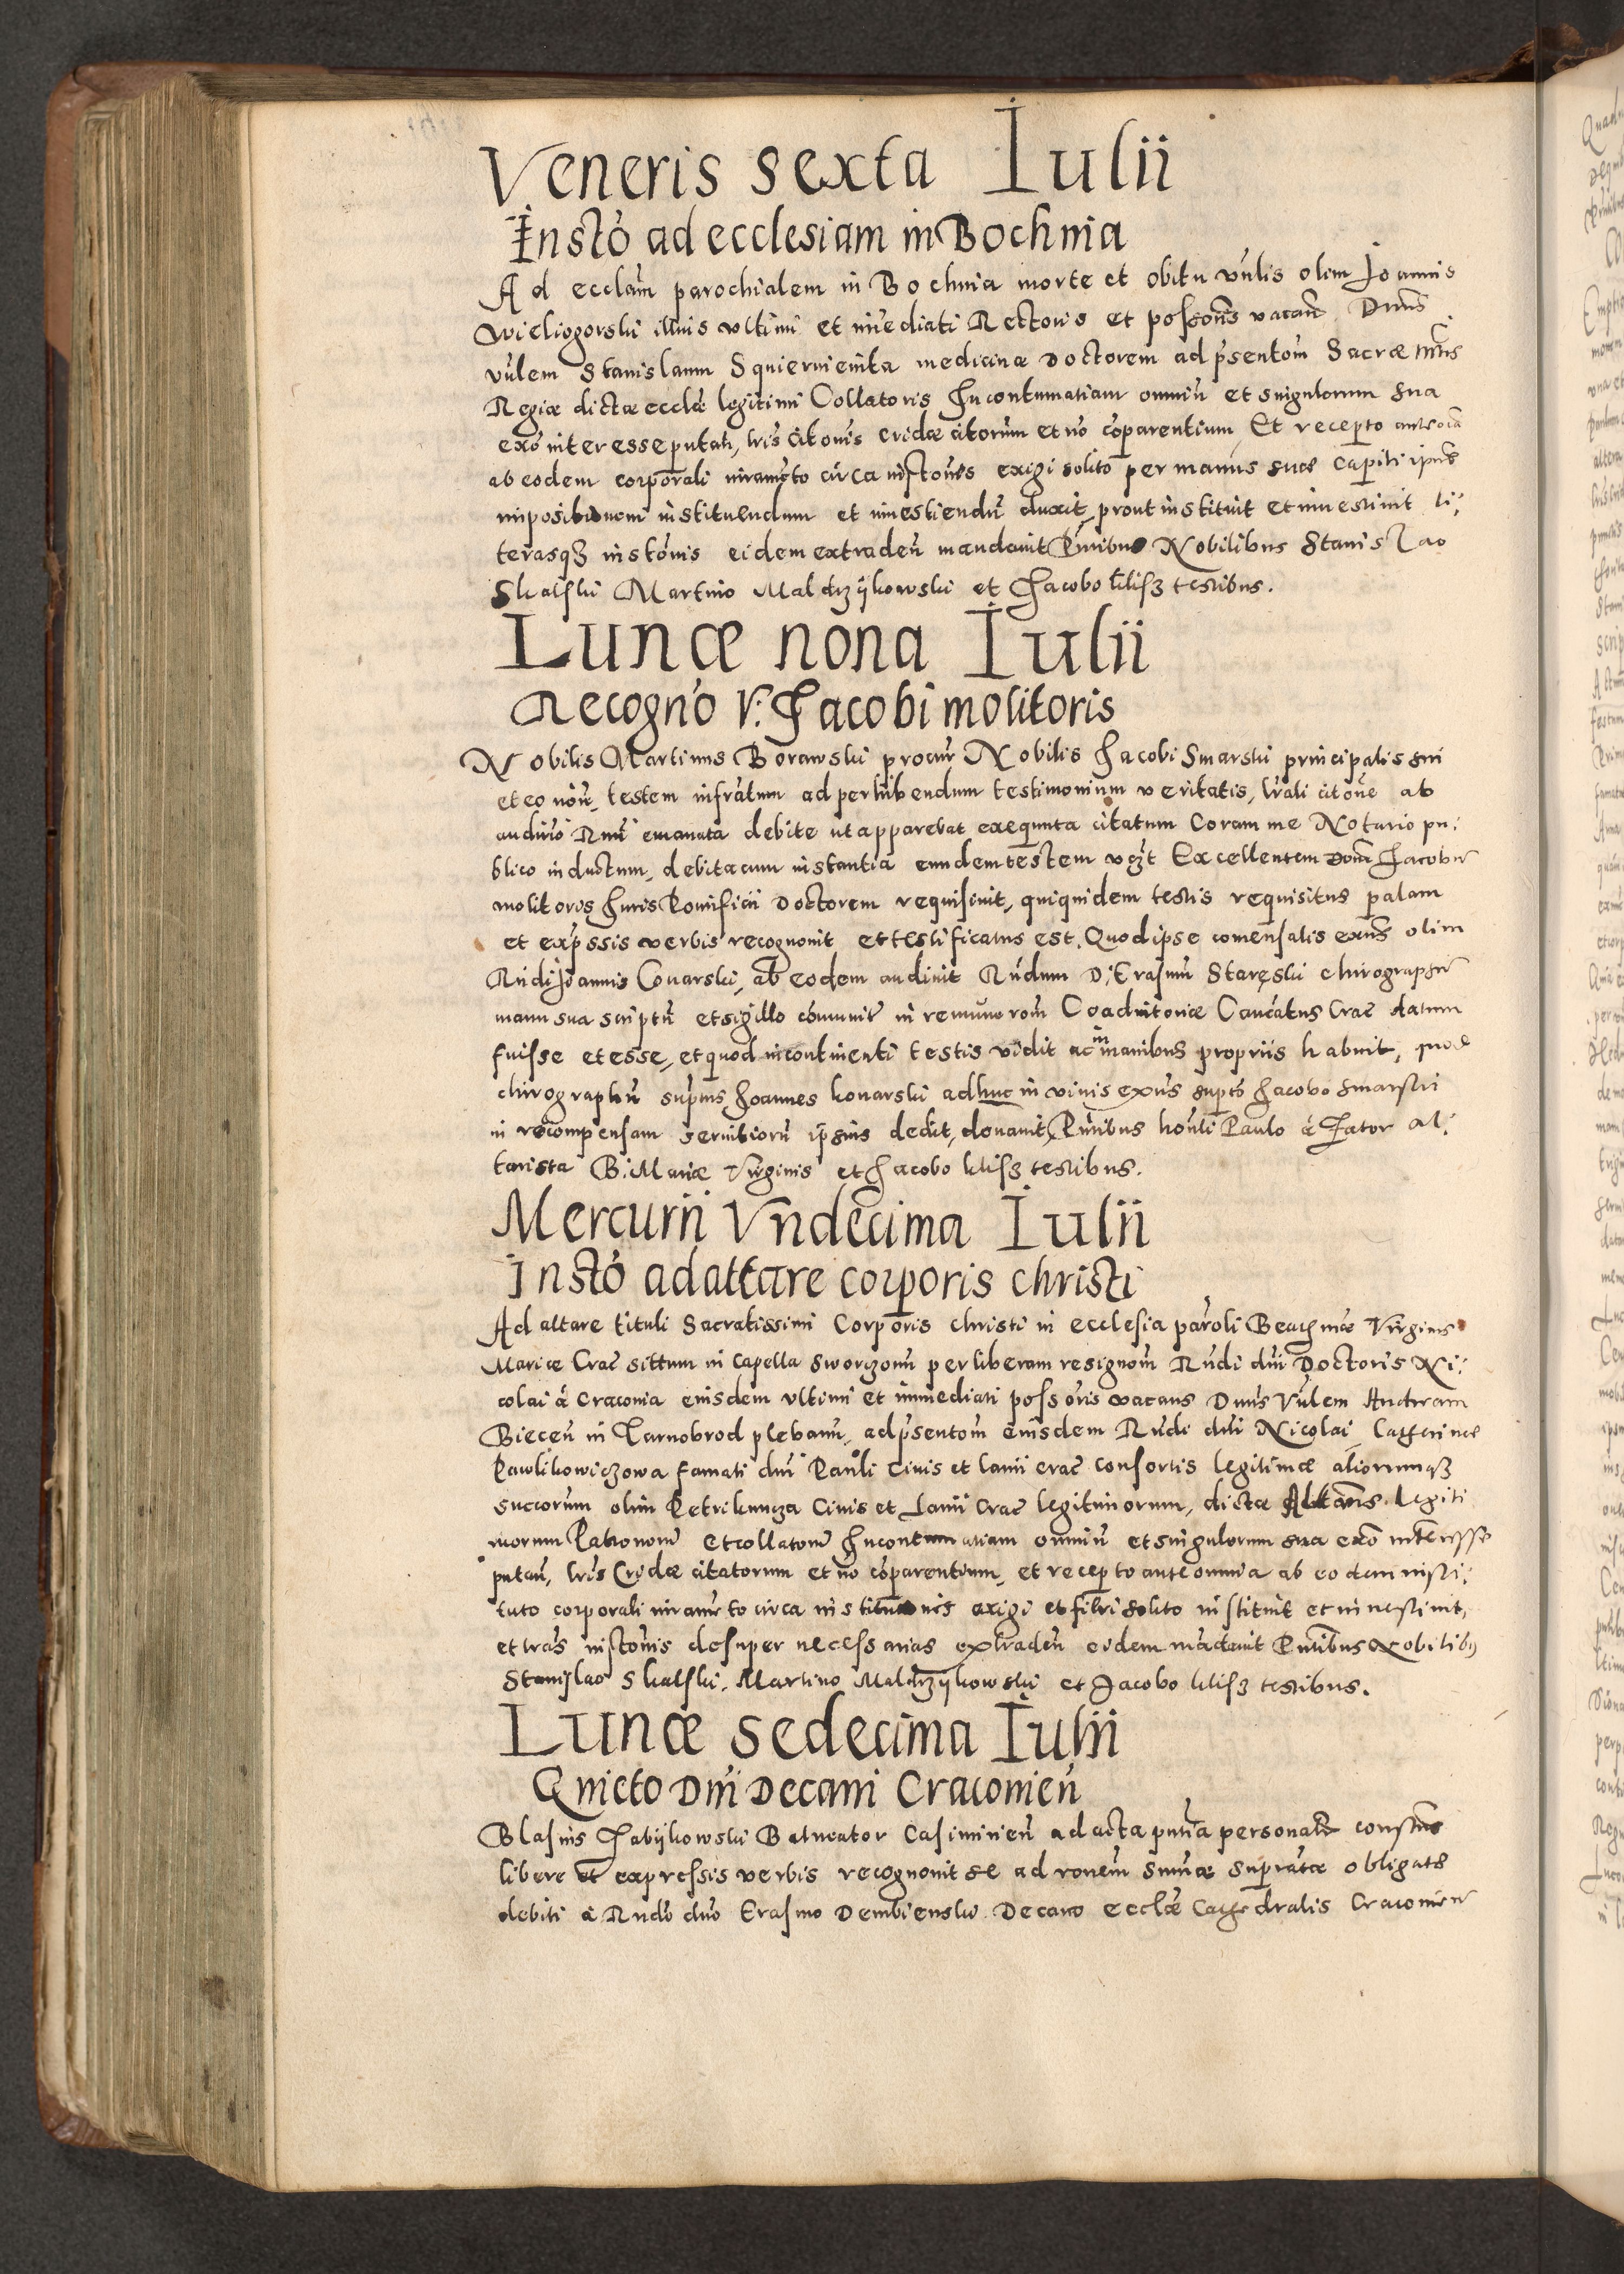 Veneris sexta Iulii
Insto ad ecclesiam in Bochnia
Ad ecclam parochialem in Bochnia morte et obitu vnlis olim Joannis
Wieliogorski illius vltimi et imediati Rectoris et possoris vacan Dnus
vnlem Stanislaum Squiernienita medicinae Doctorem ad psentom Sacrae Mtis
Regiae dictae ecclae legitimi Collatoris In contumatiam omniu et singulorum sua
exo interesse putan, lris citonis cridae citorum et no coparentium, Et recepto ante oia
ab eodem corporali iuramto circa instones exigi solito per manus suae capiti ipius
impositionem instituendum et inuestiendu duxit, prout instituit et inuestiuit li:
terasqz instonis eidem extraden mandauit Pntibus Nobilibus Stanislao
Skalski Martino Maldrzykowski et Jacobo Klisz testibus.
Lunae nona Iulii
Recogno V: Jacobi molitoris
Nobilis Martinus Borawski procur Nobilis Jacobi Smarski principalis sui
et eo noie, testem infratum ad perhibendum testimonium veritatis, lrali citone ab
audirio Rmi emanata debite ut apparebat exequuta citatum Coram me Notario pu:
blico inductum, debita cum instantia eundem testem vczt Excellentem Dom Jacobu
molitoris Juris Pontificii Doctorem requisiuit, qui quidem testis requisitus palam
et expssis verbis recognouit et testificatus est. Quod ipse comensalis exns olim
Rndi Joannis Conarski, ab eodem audiuit Rndum D: Erasmu Staręski chirographu
manu sua scriptu et sigillo comunit in remunerom Coadiutoriae Cancatus Crac datum
fuisse et esse, et quod in continenti testis vidit ac in manibus propriis habuit, quod
chirographu suptus Joannes konarski adhuc in viuis exns supto Jacobo Smarski
in recompensam seruitioru ipsius dedit, donauit, Pntibus honli Paulo à Jator al:
tarista B: Mariae Virginis et Jacobo klisz testibus.
Mercurii Vndecima Iulii
Insto ad altare corporis christi
Ad altare tituli Sacratissimi Corporis christi in ecclesia paroli Beatissimae Virginis
Mariae Crac situm in Capella Sworczonu per liberam resignom Rndi dni Doctoris Ni:
colai à Cracouia eiusdem vltimi et immediati possoris vacans Dnus Vnlem Andream
Biecen in Tarnobrod plebanu, ad psentom eiusdem Rndi dni Nicolai, Catherinae
Pawlikowiczowa famati dni Pauli Ciuis et lanii crac consortis legitimae aliorumqz
succorum olim Petrikuncza Ciuis et Lanii Crac legitimorum, dictae Altaris legiti
morum Patronoru et collatoru In contumatiam omniu et singulorum sua exo interesse
putan, lris Cridae citatorum et no coparentium, et recepto ante omnia ab eodem insti:
tuto corporali iuramto circa institutionis exigi et fieri solito instituit et inuestiuit,
et lras instonis desuper necessarias extraden eidem madauit Pntibus Nobilibus
Stanislao Skalski, Martino Maldrzykowski et Jacobo klisz testibus.
Lunae sedecima Iulii
Quieto Dni Decani Cracouien
Blasius Jatykowski Balneator Casimirien ad acta pntia personalr constus
libere et expressis verbis recognouit se ad ronem sumae supratae obligats
debiti à Rndo dno Erasmo Dembienski Decano ecclae Cathedralis Cracouien